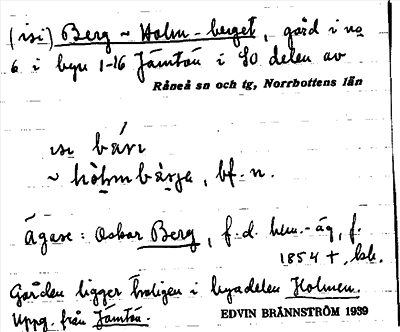 (isi) Berg ~ Holm-berget, gård i no
6 i byn 1-16 Jämtön i SO delen av
Råneå sn och tg, Norrbottens län
isi bä́rı
~ hòlmbärjə, bf. n.
Ägare: Oskar Berg, f.d. hem.-äg, f.
1854 +,
Gården ligger troligen i byadelen Holmen.
Uppg. från Jämtön.
EDVIN BRÄNNSTRÖM 1939